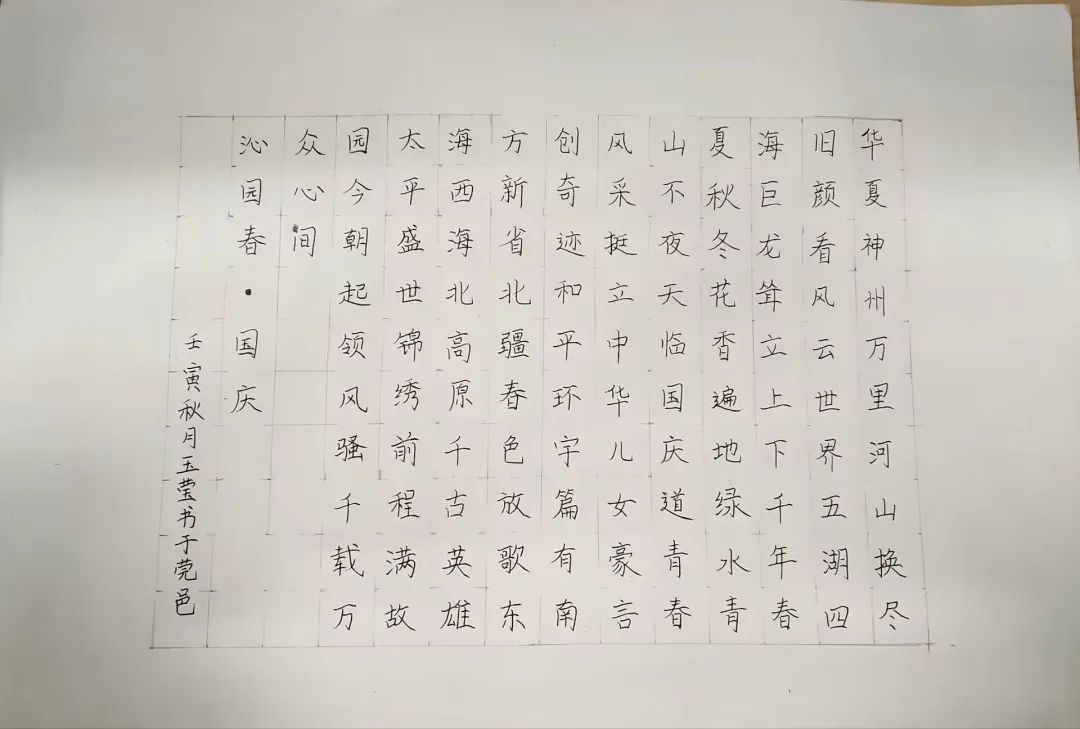 华夏神州万里河山换尽
旧颜看风云世界五湖四
海巨龙耸立上下千年春
夏秋冬花香遍地绿水青
山不夜天临国庆道青春
风采挺立中华儿女豪言
创奇迹和平环宇篇有南
方新省北疆春色放歌东
海西海北高原千古英雄
太平盛世锦绣前程满故
园今朝起领风骚千载万
众心间
沁园春·国庆
壬寅秋月玉莹书于莞邑